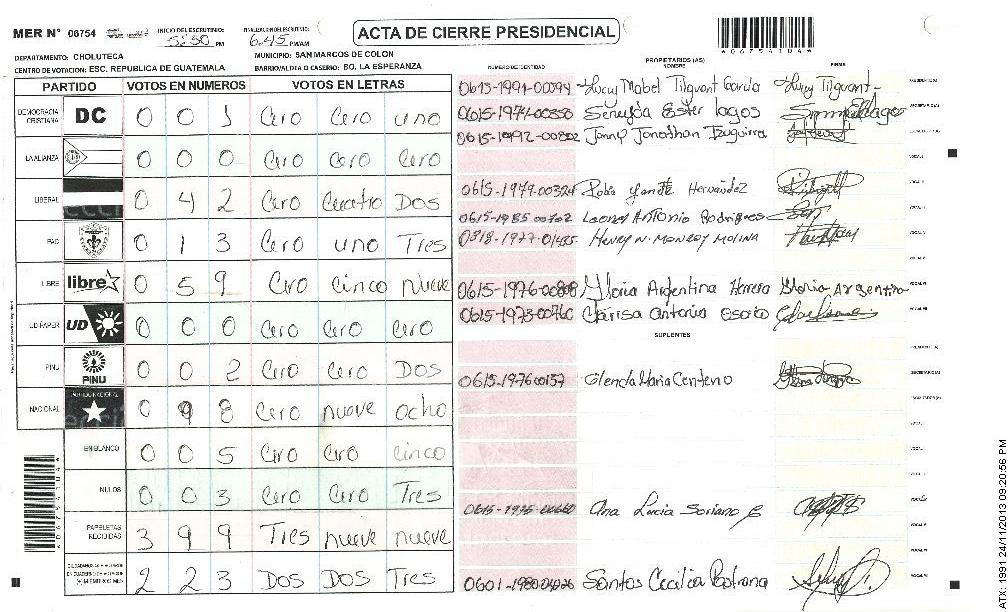 MER N° 06754
INICIO DEL ESCRUTINIO:
5:50 PM
FINALIZACION ESCRUTINIO:
6:45 PM/AM
ACTA DE CIERRE PRESIDENCIAL
*06754104*
DEPARTAMENTO: CHOLUTECA
MUNICIPIO: SAN MARCOS DE COLON
CENTRO DE VOTACION: ESC. REPUBLICA DE GUATEMALA
BARRIO/ALDEA O CASERIO: BO. LA ESPERANZA
PARTIDO VOTOS EN NUMEROS VOTOS EN LETRAS
DEMOCRACIA CRISTIANA DC 0 0 1 Cero Cero uno
LA ALIANZA 0 0 0 Cero Cero Cero
LIBERAL 0 4 2 Cero Cuatro Dos
PAC 0 1 3 Cero uno Tres
LIBRE libre 0 5 9 Cero cinco nueve
UD/FAPER UD 0 0 0 Cero Cero Cero
PINU PINU 0 0 2 Cero Cero Dos
NACIONAL 0 9 8 Cero nueve ocho
EN BLANCO 0 0 5 Cero Cero cinco
NULOS 0 0 3 Cero Cero Tres
PAPELETAS RECIBIDAS 3 9 9 Tres nueve nueve
2 2 3 Dos Dos Tres
NUMERO DE IDENTIDAD
PROPIETARIOS (AS)
NOMBRE
FIRMA
Lucy Mabel
Ester Lagos
0615-1992-00802 Jonny Jonathan Izaguirre
0615-1979-00324 Yaneth Hernández
0615-1985-00702 Leonel Antonio Rodriguez
Henry N. Monroy Molina
0615-1976-00808 Gloria Argentina Herrera Gloria Argentina
0615-1973-00760 Clarisa Antonia Osorio
SUPLENTES
0615-1976-00157 Glenda Maria Centeno
0615-1975-00660 Ana Lucia Soriano
Santos Cecilia Pastrana
ATX: 1991 24/11/2013 09:20:56 PM